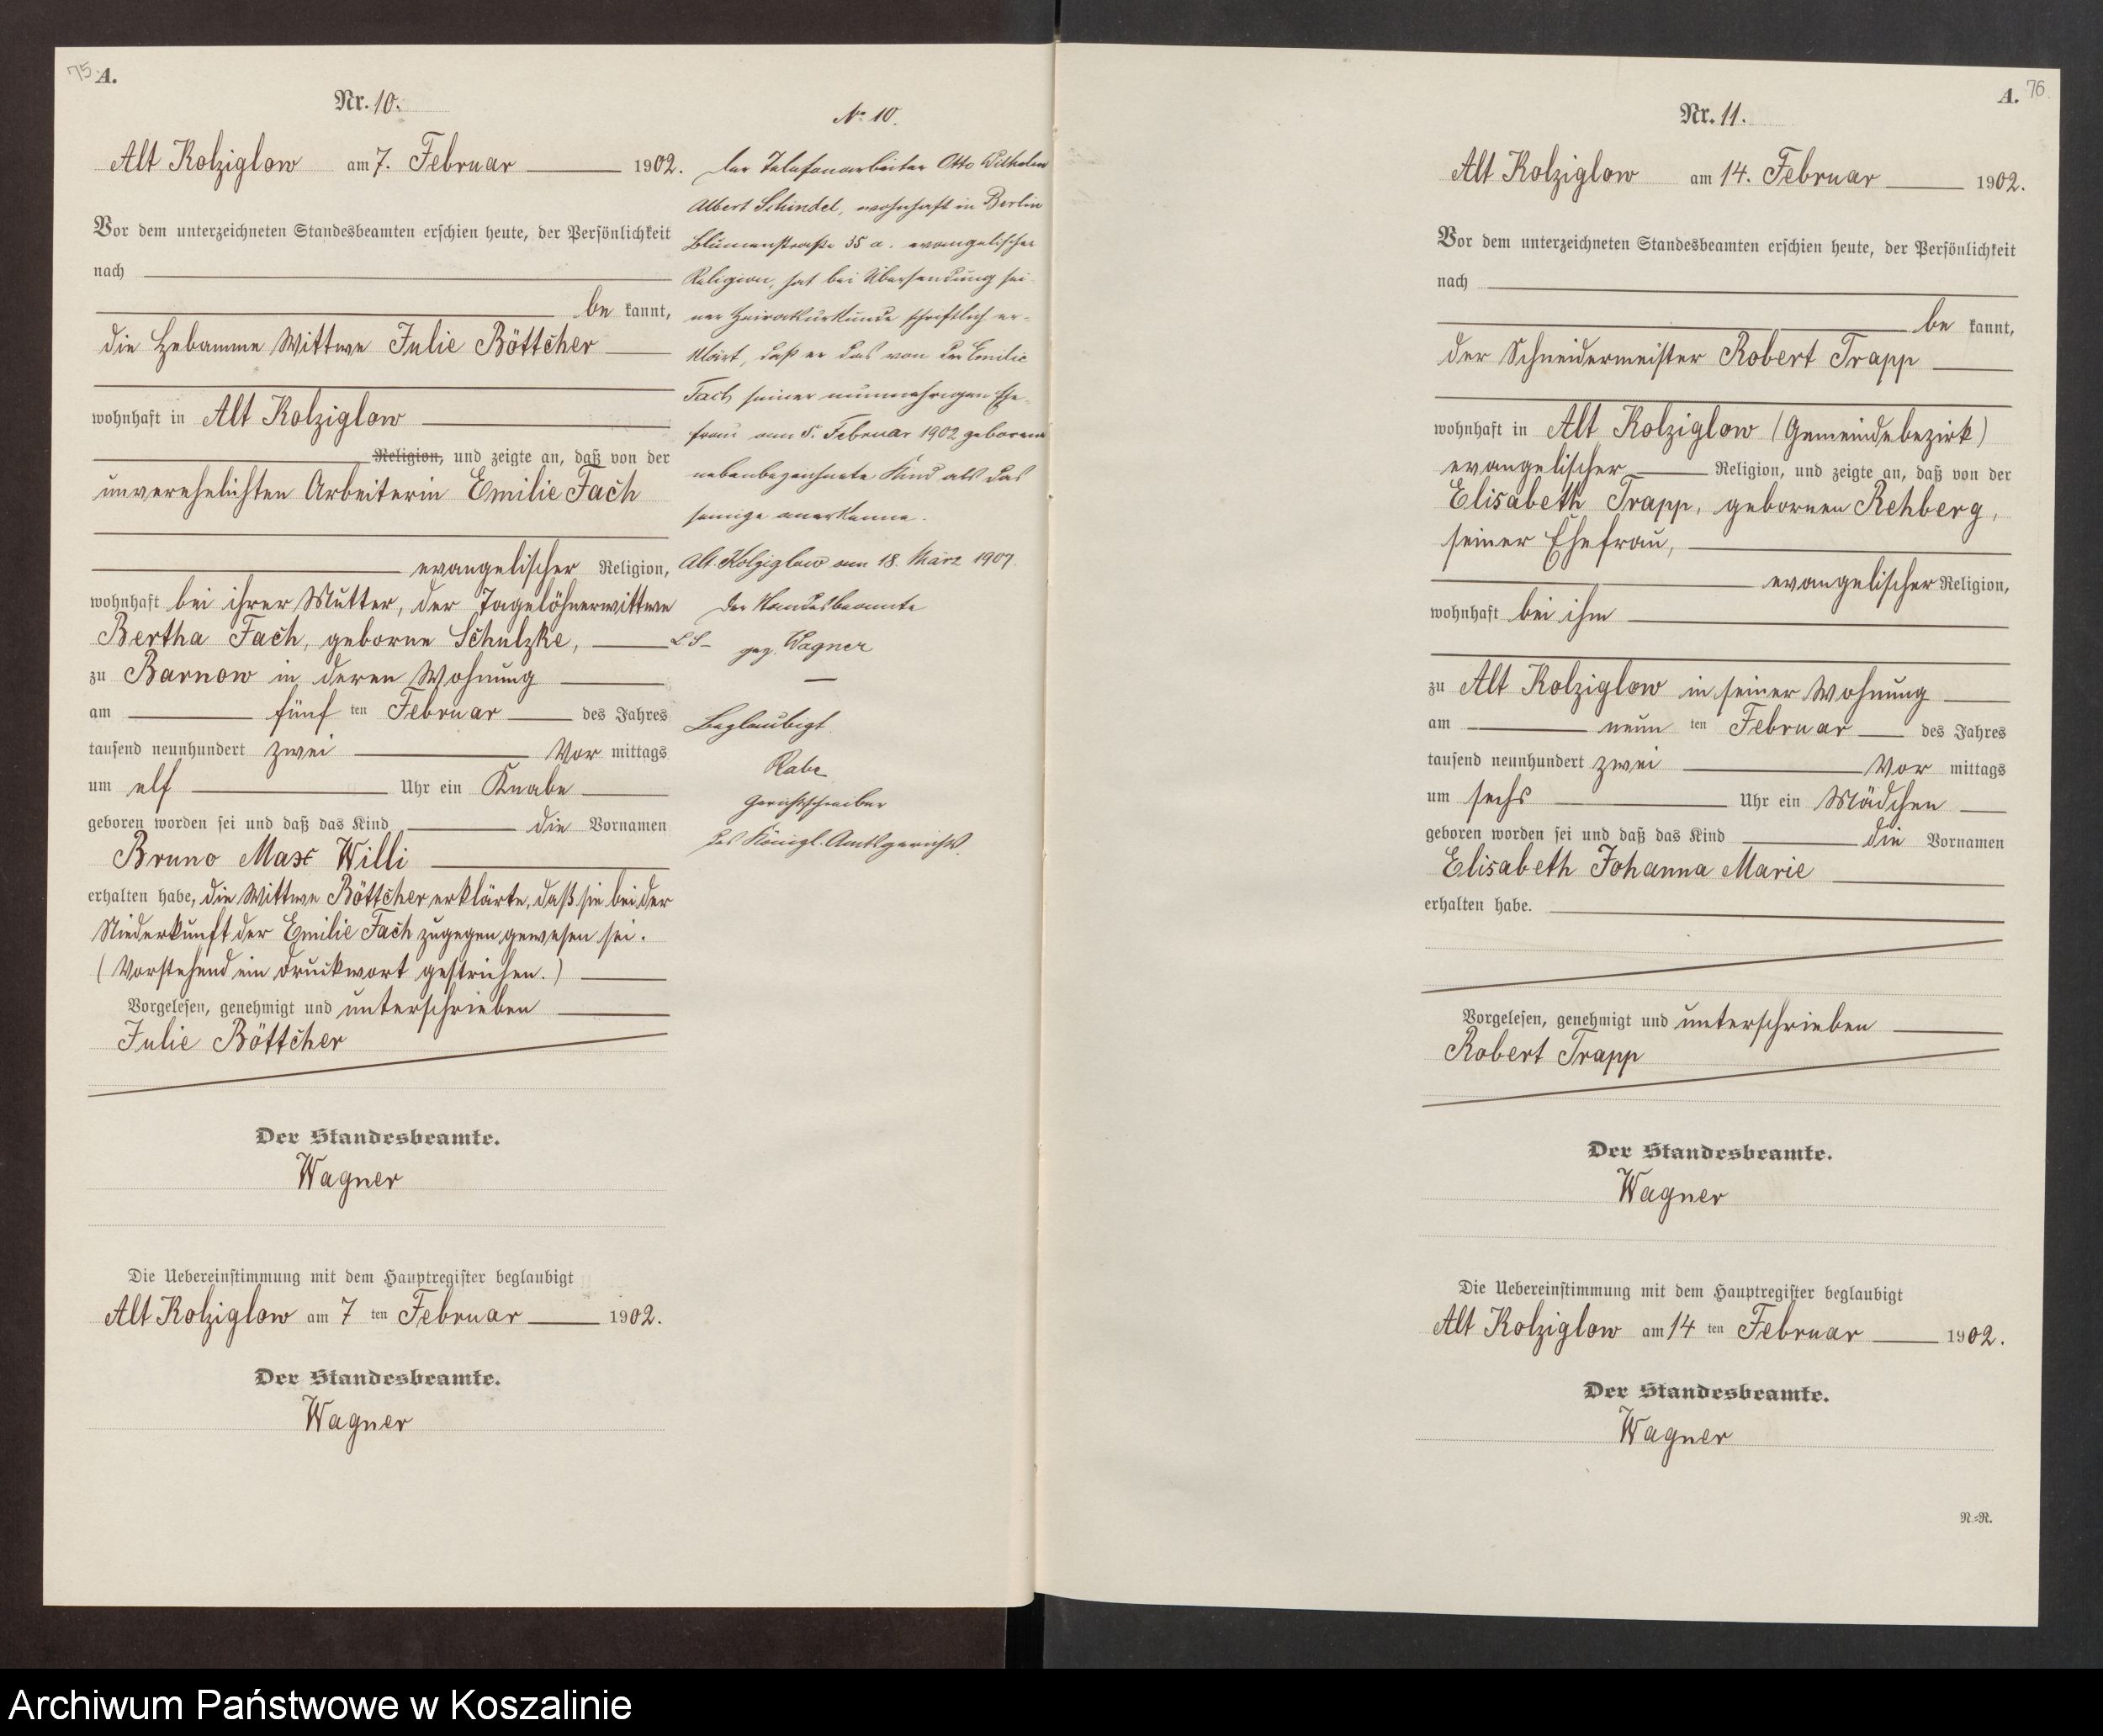 75 A.
Nr. 10.
Alt Kolziglow am 7. Februar 1902.
Vor dem unterzeichneten Standesbeamten erschien heute, der Persönlichkeit
nach
be kannt,
die Hebamme Wittwe Julie Böttcher
wohnhaft in Alt Kolziglow
Religion, und zeigte an, daß von der
unverehelichten Arbeiterin Emilie Fach
evangelischer Religion,
wohnhaft bei ihrer Mutter, der Tagelöhnerwittwe
Bertha Fach, geborne Schulzke,
zu Barnow in deren Wohnung
am fünf ten Februar des Jahres
tausend neunhundert zwei Vor mittags
um elf Uhr ein Knabe
geboren worden sei und daß das Kind die Vornamen
Bruno Max Willi
erhalten habe, die Wittwe Böttcher erklärte, daß sie bei der
Niederkunft der Emilie Fach zugegen gewesen sei.
(Vorstehend ein Druckwort gestrichen.)
Vorgelesen, genehmigt und unterschrieben
Julie Böttcher
Der Standesbeamte.
Wagner
Die Uebereinstimmung mit dem Hauptregister beglaubigt
Alt Kolziglow am 7 ten Februar 1902.
Der Standesbeamte.
Wagner
No 10.
Der Telefonarbeiter Otto Wilhelm
Albert Schindel, wohnhaft in Berlin
Blumenstraße 35 a. evangelischer
Religion, hat bei Übersendung sei
ner Heiratsurkunde schriftlich er-
klärt, daß er das von der Emilie
Fach seiner nunmehrigen Ehe-
frau am 5. Februar 1902 geborene
nebenbezeichnete Kind als das
seinige anerkenne.
Alt-Kolziglow am 18. März 1907.
Der Standesbeamte
L S gez. Wagner
Beglaubigt
Rabe
Gerichtsschreiber
des Königl. Amtsgerichts.
A. 76
Nr. 11.
Alt Kolziglow am 14. Februar 1902.
Vor dem unterzeichneten Standesbeamten erschien heute, der Persönlichkeit
nach
be kannt,
der Schneidermeister Robert Trapp
wohnhaft in Alt Kolziglow (Gemeindebezirk)
evangelischer Religion, und zeigte an, daß von der
Elisabeth Trapp, gebornen Rehberg,
seiner Ehefrau,
evangelischer Religion,
wohnhaft bei ihm
zu Alt Kolziglow in seiner Wohnung
am neun ten Februar des Jahres
tausend neunhundert zwei Vor mittags
um sechs Uhr ein Mädchen
geboren worden sei und daß das Kind die Vornamen
Elisabeth Johanna Marie
erhalten habe.
Vorgelesen, genehmigt und unterschrieben
Robert Trapp
Der Standesbeamte.
Wagner
Die Uebereinstimmung mit dem Hauptregister beglaubigt
Alt Kolziglow am 14 ten Februar 1902.
Der Standesbeamte.
Wagner
N.=R.
Archiwum Państwowe w Koszalinie